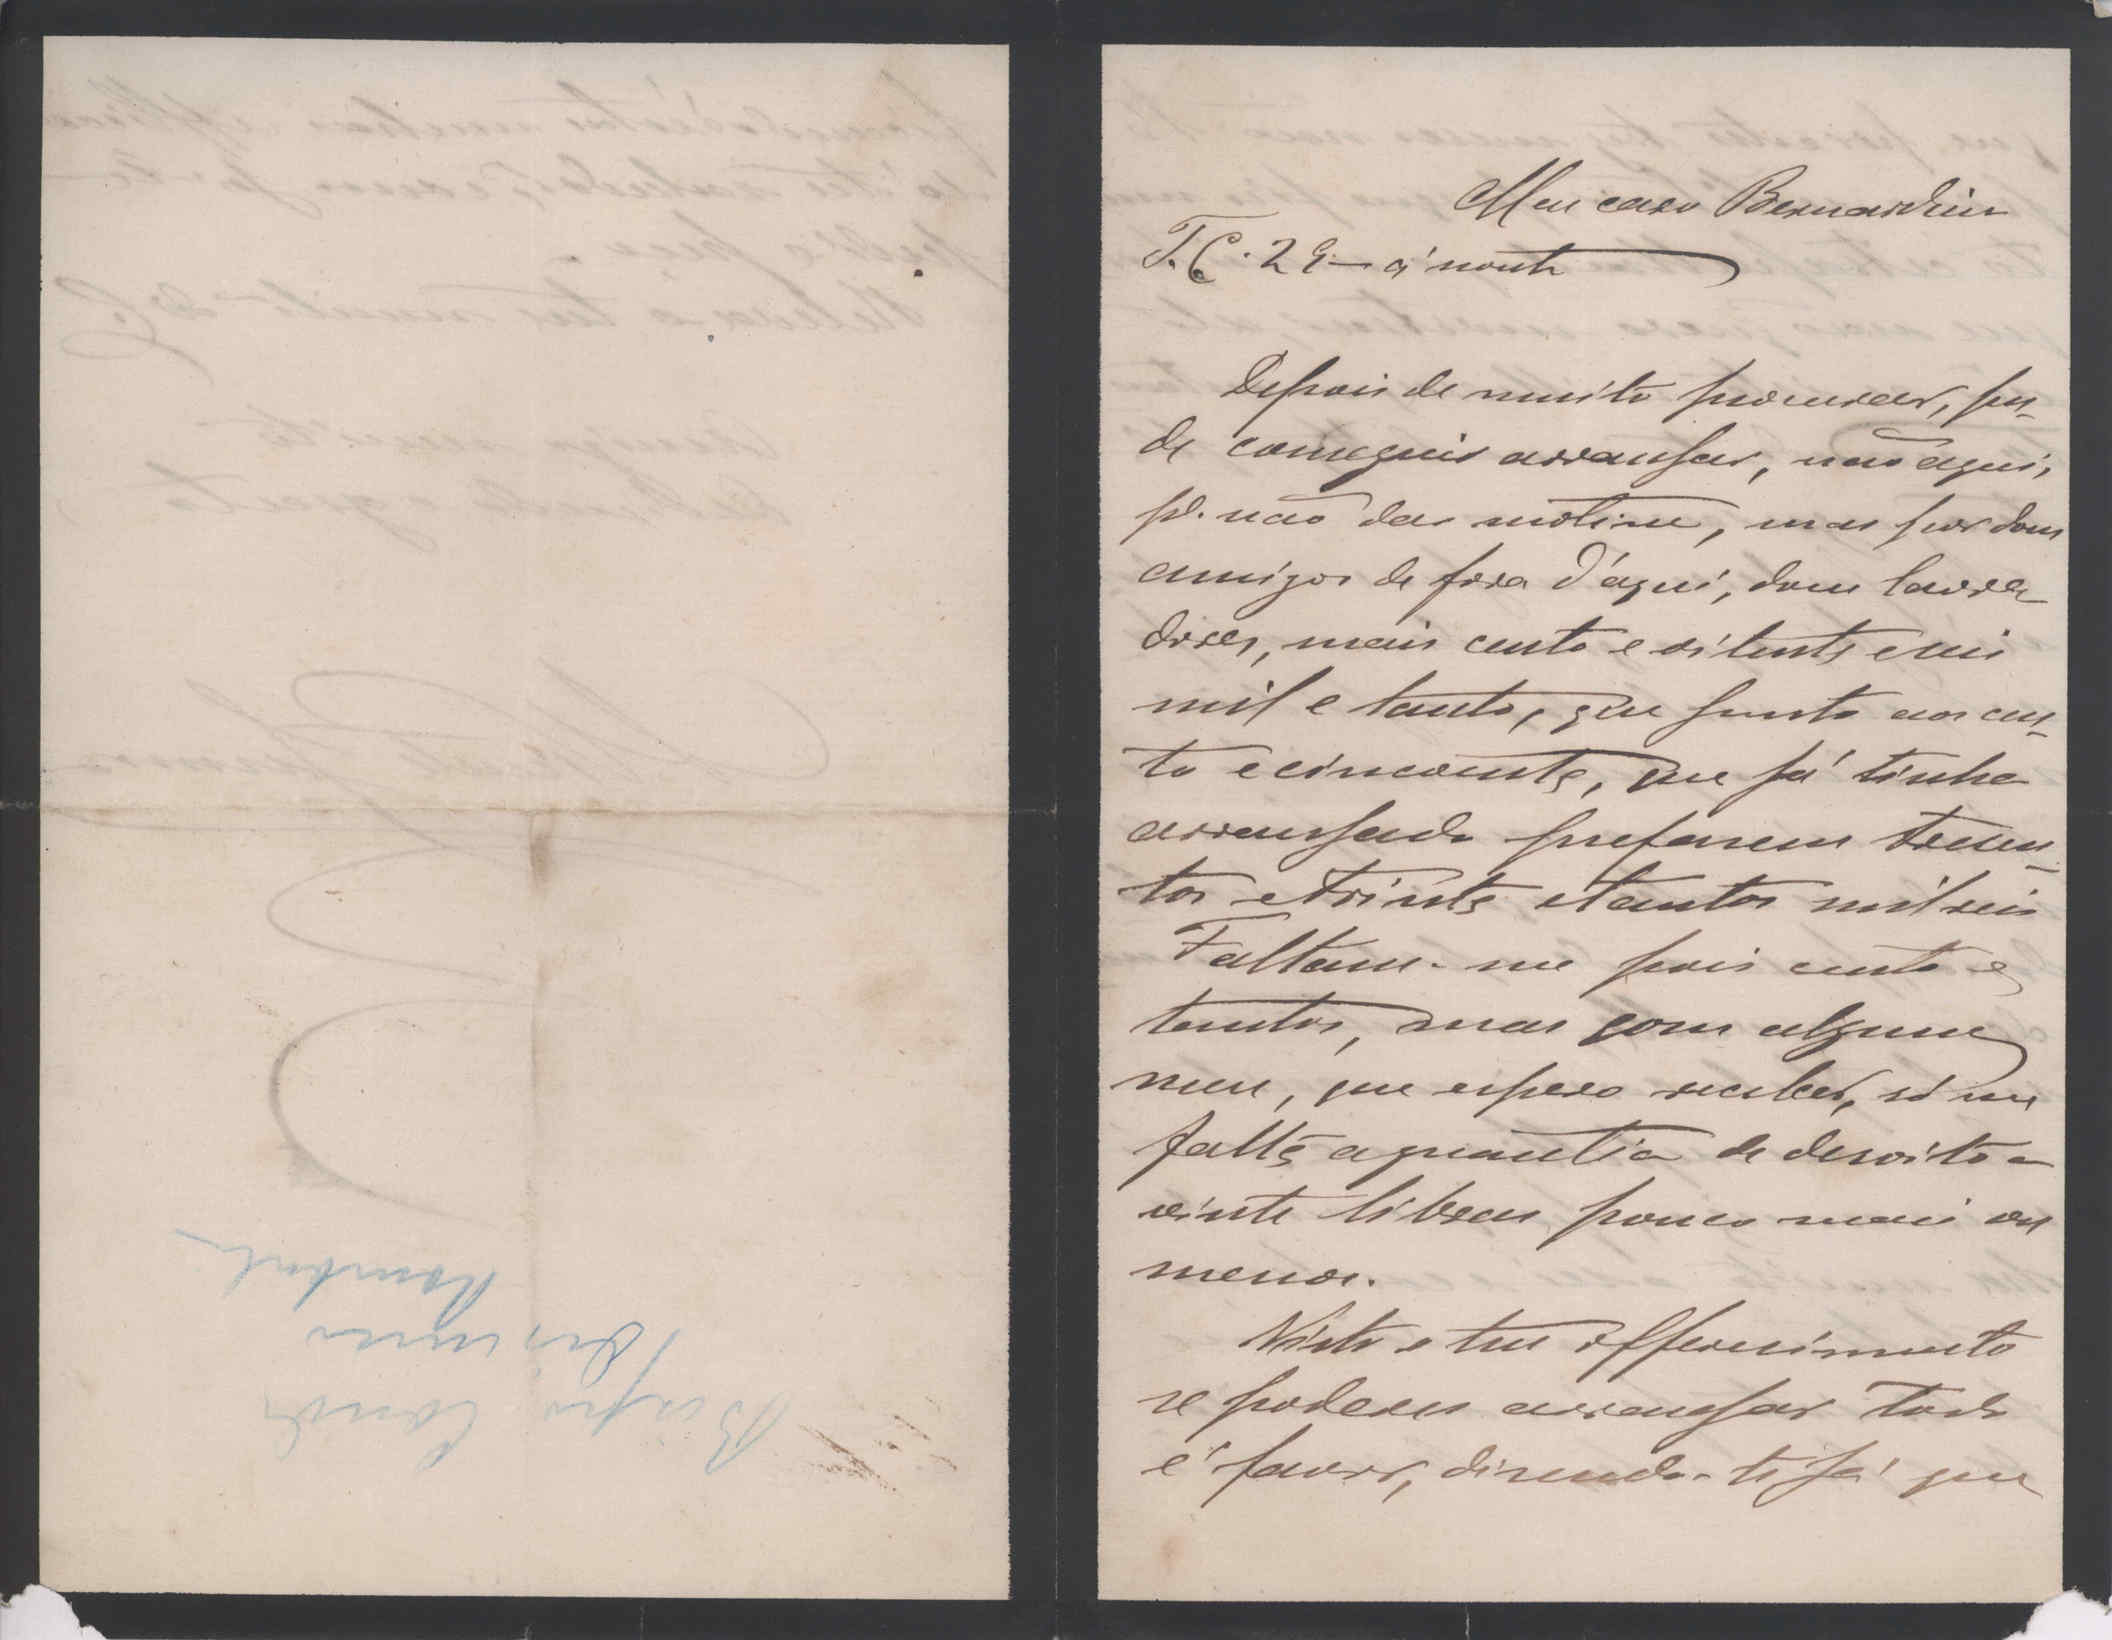 Meu caro Bernardino
T. C. 29 - á noute
Depois de muito procurar, pu-
de conseguir arranjar, não aqui,
p.ª não dar motim, mas por dous
amigos de fora d'aqui, dous lavra-
dores, mais cento e oitenta e seis
mil e tanto, que junto aos cen-
to e cincoenta, que já tinha
arranjado prefasem trezen-
tos e trinta e tantos mil reis
Faltam-me pois cento e
tantos, mas com algum
meu, que espero receber, só me
falta a quantia de desoito a
vinte libras pouco mais ou
menos.
Visto o teu offerecimento
se poderes arranjar tudo
é favor, disendo-te já que
Bispo Conde